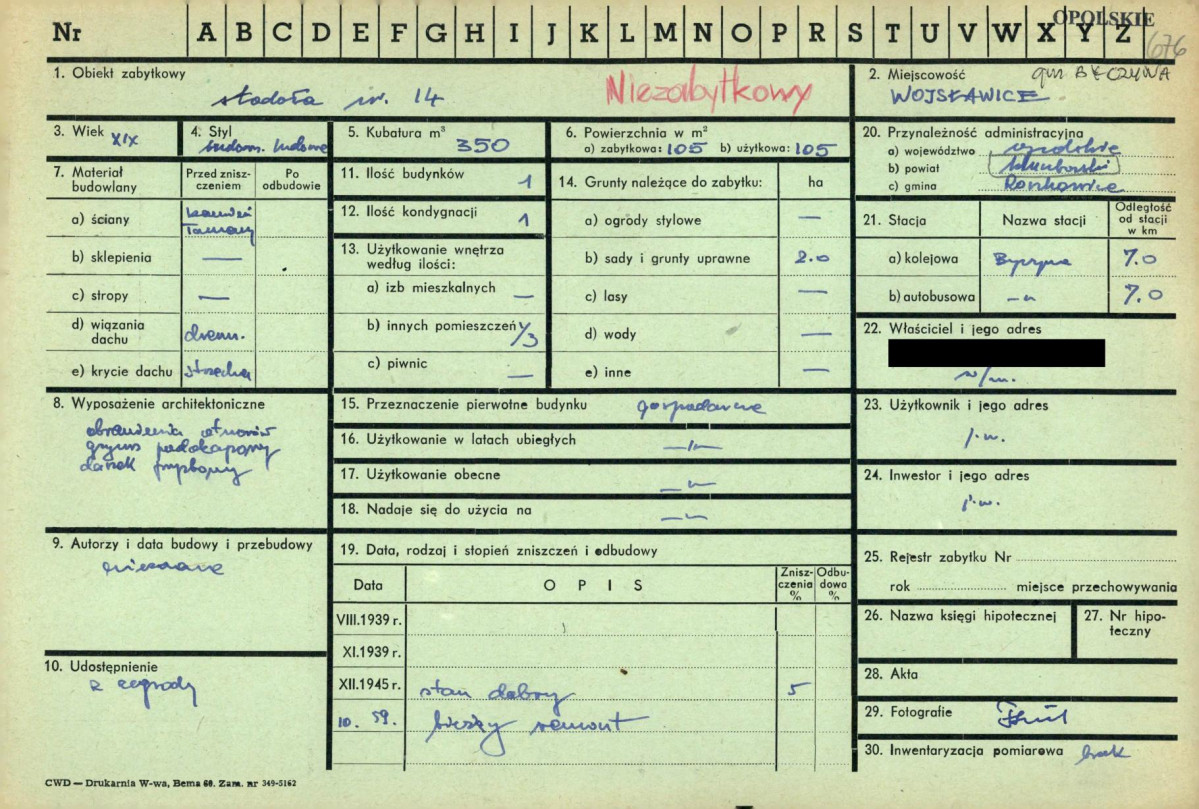 OPOLSKIE
Nr A B C D E F G H I J K L M N O P R S T U V W X Y Z
676
1. Obiekt zabytkowy
stodoła nr. 14
Niezabytkowy
2. Miejscowość
gm BYCZYNA
WOJSŁAWICE
3. Wiek XIX
4. Styl
budown. ludowe
5. Kubatura m³
350
6. Powierzchnia w m²
a) zabytkowa: 105 b) użytkowa: 105
20. Przynależność administracyjna
a) województwo opolskie
b) powiat kluczborski
c) gmina Roszkowice
7. Materiał budowlany
Przed zniszczeniem
Po odbudowie
a) ściany kamień
łamany
b) sklepienia —
c) stropy —
d) wiązania dachu drewn.
e) krycie dachu strzecha
11. Ilość budynków 1
12. Ilość kondygnacji 1
13. Użytkowanie wnętrza według ilości:
a) izb mieszkalnych —
b) innych pomieszczeń 1/3
c) piwnic —
14. Grunty należące do zabytku: ha
a) ogrody stylowe —
b) sady i grunty uprawne 2.0
c) lasy —
d) wody —
e) inne —
21. Stacja Nazwa stacji Odległość od stacji w km
a) kolejowa Byczyna 7.0
b) autobusowa -"- 7.0
22. Właściciel i jego adres
w/m.
8. Wyposażenie architektoniczne
obramienia otworów
gzyms podokapowy
daszek
15. Przeznaczenie pierwotne budynku gospodarcze
16. Użytkowanie w latach ubiegłych -"-
17. Użytkowanie obecne -"-
18. Nadaje się do użycia na -"-
23. Użytkownik i jego adres
j.w.
24. Inwestor i jego adres
j.w.
9. Autorzy i data budowy i przebudowy
nieznane
19. Data, rodzaj i stopień zniszczeń i odbudowy
Data OPIS Zniszczenia % Odbudowa %
VIII.1939 r.
XI.1939 r.
XII.1945 r. stan dobry 5
10. 59. bieżący remont
25. Rejestr zabytku Nr
rok miejsce przechowywania
26. Nazwa księgi hipotecznej
27. Nr hipoteczny
10. Udostępnienie
z zagrody
28. Akta
29. Fotografie
30. Inwentaryzacja pomiarowa brak
CWD — Drukarnia W-wa, Bema 60. Zam. nr 349-5162